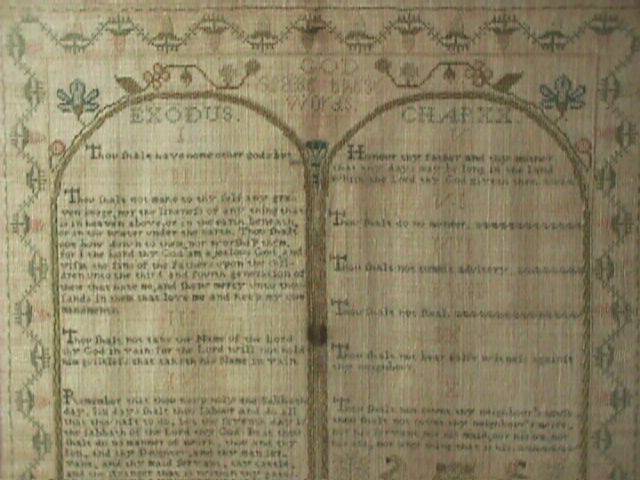 GOD
Words.
EXODUS. CHAP XX.
I
Thou shalt have none other gods but
Thou shalt not make to thy self any gra-
ven image, nor the likeness of any thing that
is in heaven above, or in the earth beneath,
or in the water under the earth. Thou shalt
not bow down to them, nor worship them,
for I the Lord thy God am a jealous God, and
visit the sins of the Fathers upon the chil-
dren unto the third and fourth generation of
them that hate me, and shew mercy unto thou-
sands in them that love me and keep my com
mandments.
Thou shalt not take the Name of the Lord
thy God in vain: for the Lord will not hold
him guiltless that taketh his Name in vain.
Remember that thou keep holy the Sabbath
day. Six days shalt thou labour and do all
that thou hast to do, but the seventh day is
the Sabbath of the Lord thy God. In it thou
shalt do no manner of work, thou and thy
Son, and thy Daughter, and thy man ser-
vant, and thy maid servant, thy cattle,
and the stranger that is within thy gates.
V
Honour thy father and thy mother
that thy days may be long in the land
which the Lord thy God giveth thee.
VI
Thou shalt do no murder.
Thou shalt not commit adultery.
Thou shalt not steal.
Thou shalt not bear false witness against
thy neighbour.
X
Thou shalt not covet thy neighbour's house
thou shalt not covet thy neighbour's wife,
nor his servant nor his maid, nor his ox, nor
his ass, nor any thing that is his